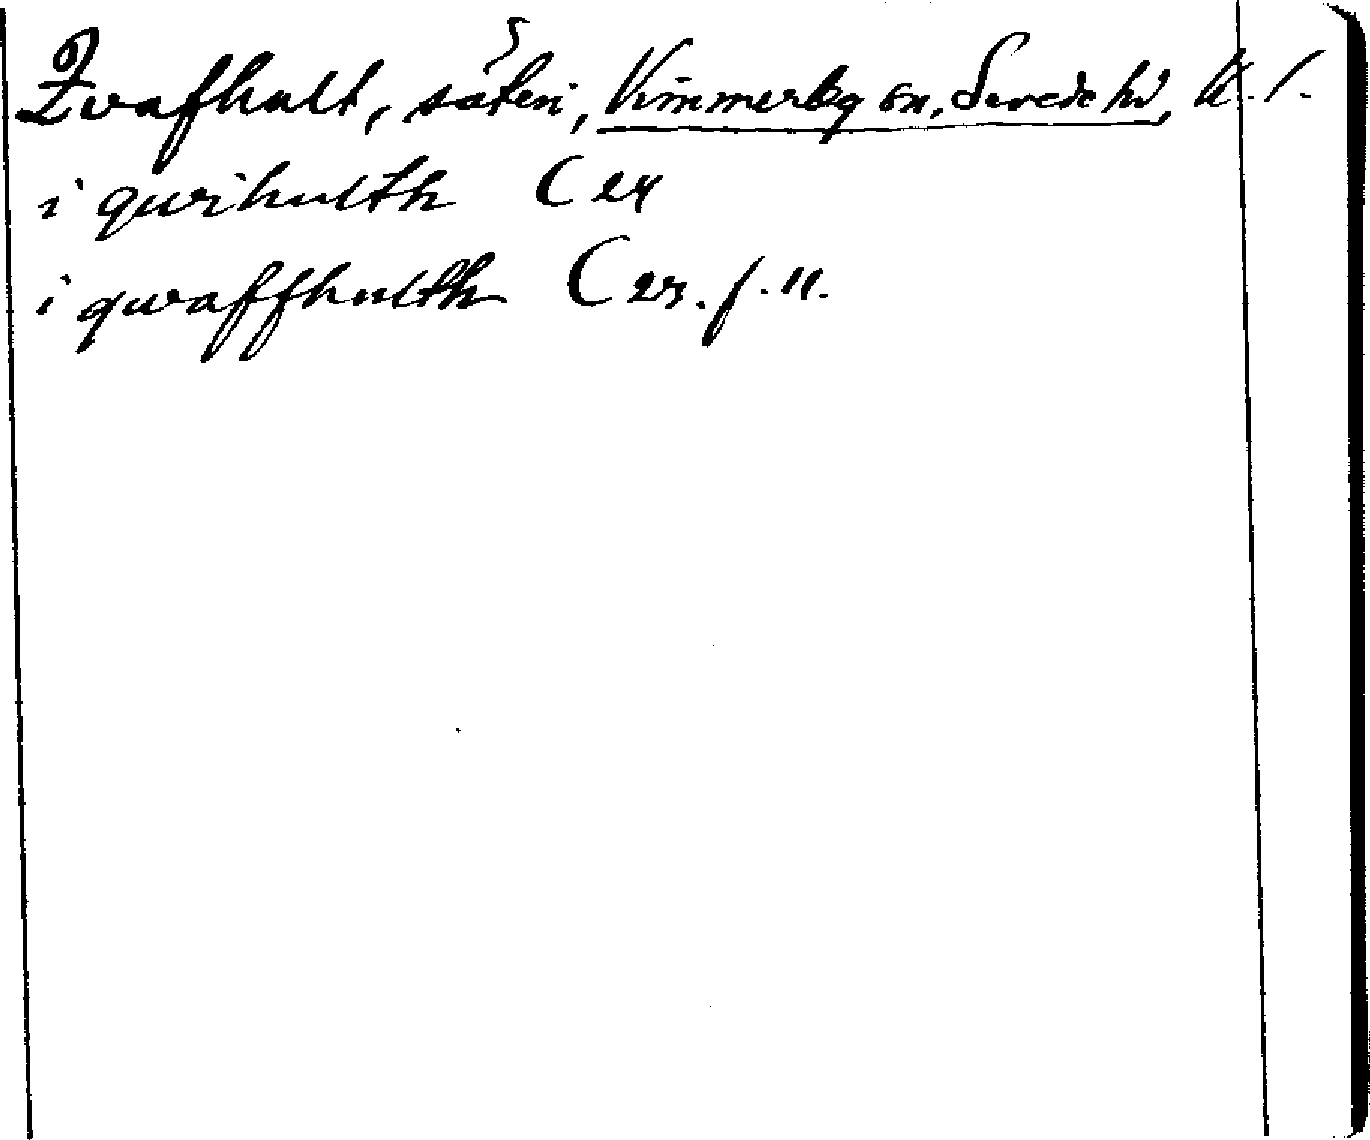 Qvafhult, säteri, Vimmerby sn, Sevede hd, K. l.
i qwihulth C 24
i qwaffhulth C 23. f. 11.